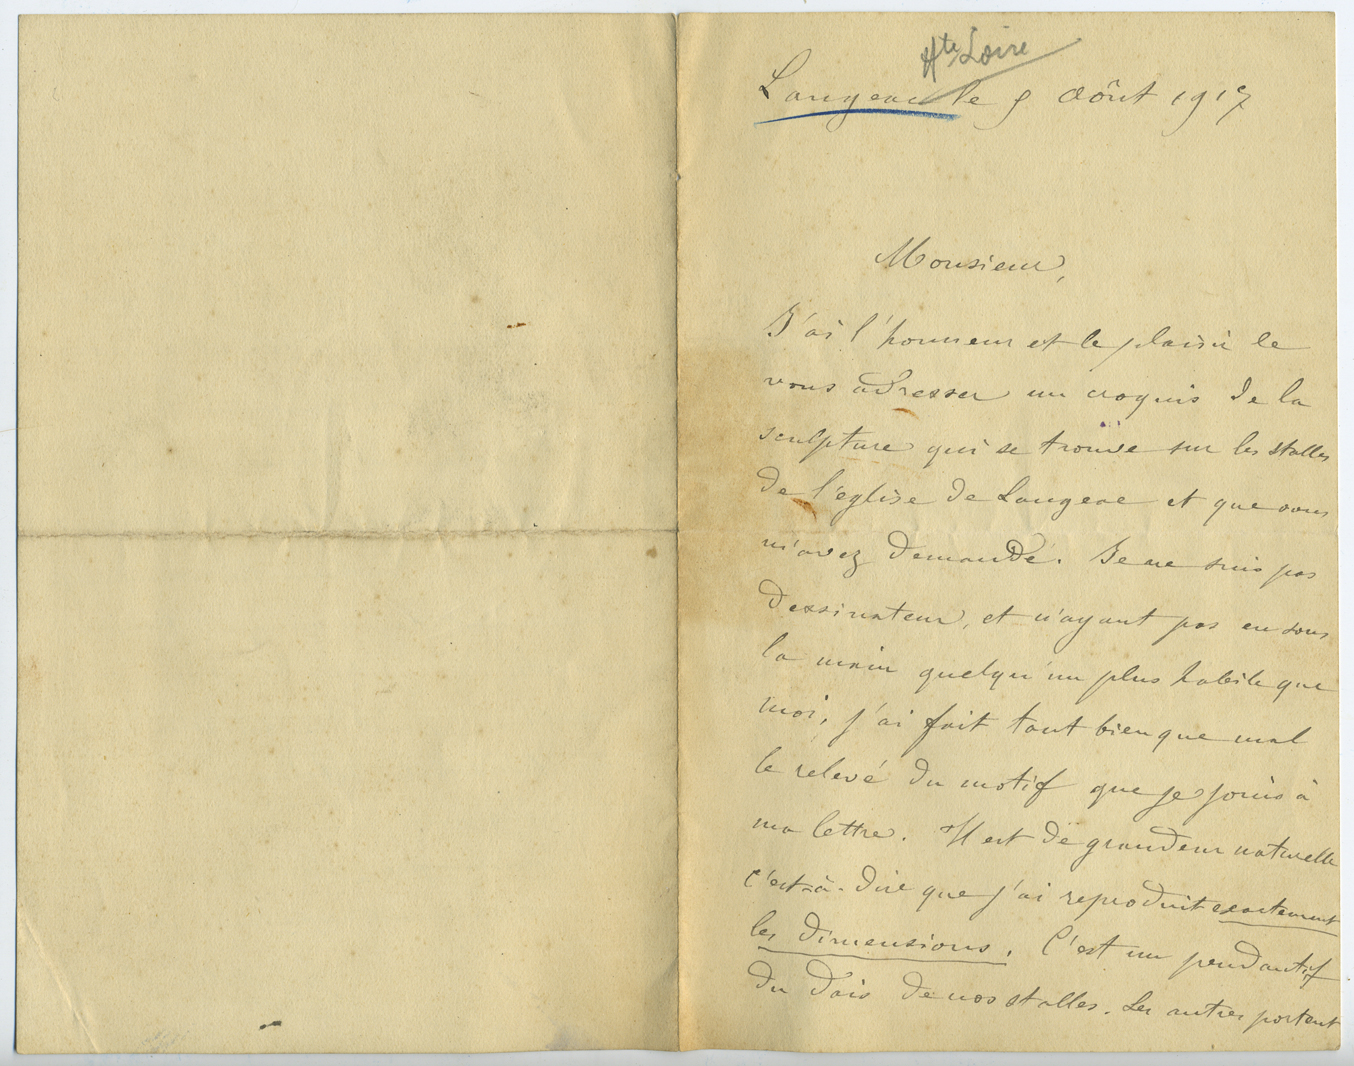 Hte Loire
Langeac le 9 Août 1917
Monsieur,
J'ai l'honneur et le plaisir de
vous adresser un croquis de la
sculpture qui se trouve sur les stalles
de l'église de Langeac et que vous
m'avez demandé. Je ne suis pas
dessinateur, et n'ayant pas eu sous
la main quelqu'un plus habile que
moi, j'ai fait tant bien que mal
le relevé du motif que je joins à
ma lettre. Il est de grandeur naturelle
c'est-à-dire que j'ai reproduit exactement
les dimensions. C'est un pendantif
du dais de nos stalles. Les autres portent